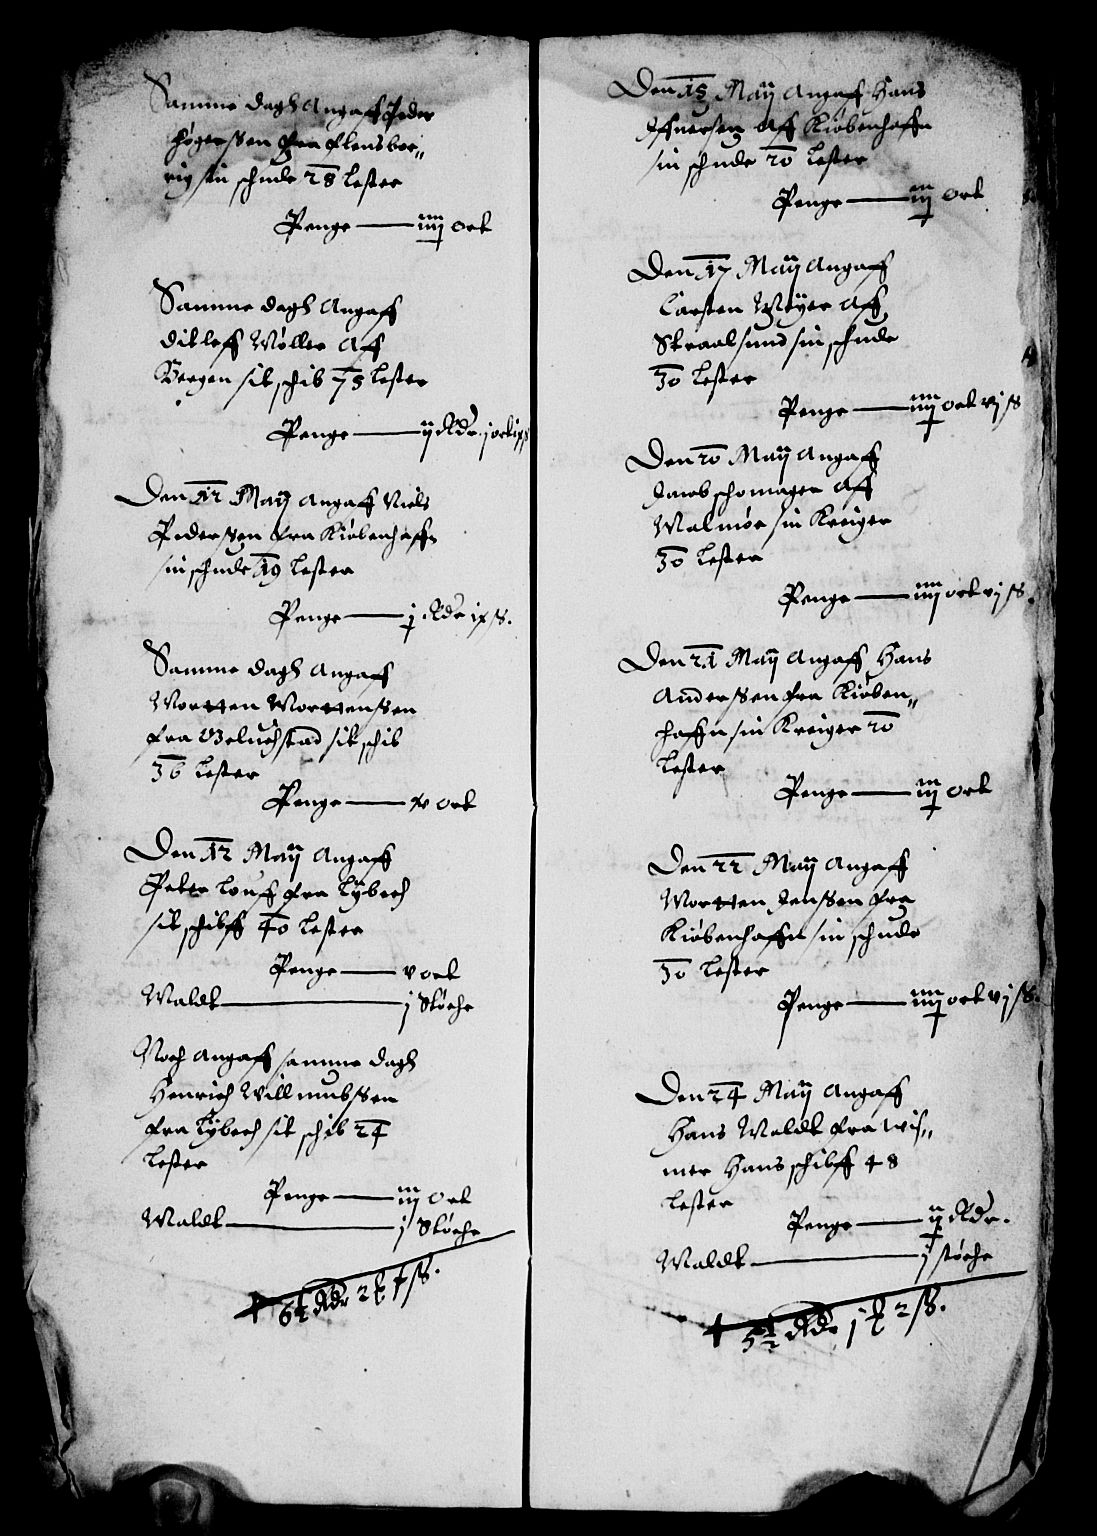 Samme dagh Angaff Peder
Høgenssen fra Flensbor„
rig sin schude 28 Lester
Penge — iiij ort
Samme dagh Angaff
Ditleff Møller Aff
Bergen sit schib 75 Lester
Penge — ij Rdr. j ort ix ß
Den 12 Maij Angaff Niels
Pederssen fra Kiøbenhaffn
sin schude 19 Lester
Penge — j Rdr ix ß.
Samme dagh Angaff
Mortten Mortenssen
fra sit schib
36 Lester
Penge — v ort
Den 12 Maij Angaff
Peter Louff fra Lybech
sit schiff 40 Lester
Penge — v ort
Maldt — j Støche
Noch Angaff samme dagh
Henrich Willumbssen
fra Lybech sit schib 24
Lester
Penge — iij ort
Maldt — j Støche
6½ Rdr 2 ß.
Den 15 Maij Angaff Hans
Iffuersen Aff Kiøbenhaffn
sin schude 20 Lester
Penge — iij ort
Den 17 Maij Angaff
Carsten Meyer Aff
Straalsund sin schude
30 Lester
Penge — iiij ort vj ß
Den 20 Maij Angaff
Jacob schomager Aff
Malmøe sin Kreiger
30 Lester
Penge — iiij ort vj ß.
Den 21 Maij Angaff Hans
Anderssen fra Kiøben„
haffn sin Kreiger 20
Lester
Penge — iij ort
Den 22 Maij Angaff
Mortten Jenssen fra
Kiøbenhaffn sin schude
30 Lester
Penge — iiij ort vj ß.
Den 24 Maij Angaff
Hans Woldt fra Wis„
mer Hans schiff 48
Lester
Penge — ij Rdr.
Maldt — j støche
5½ Rdr j 2 ß.